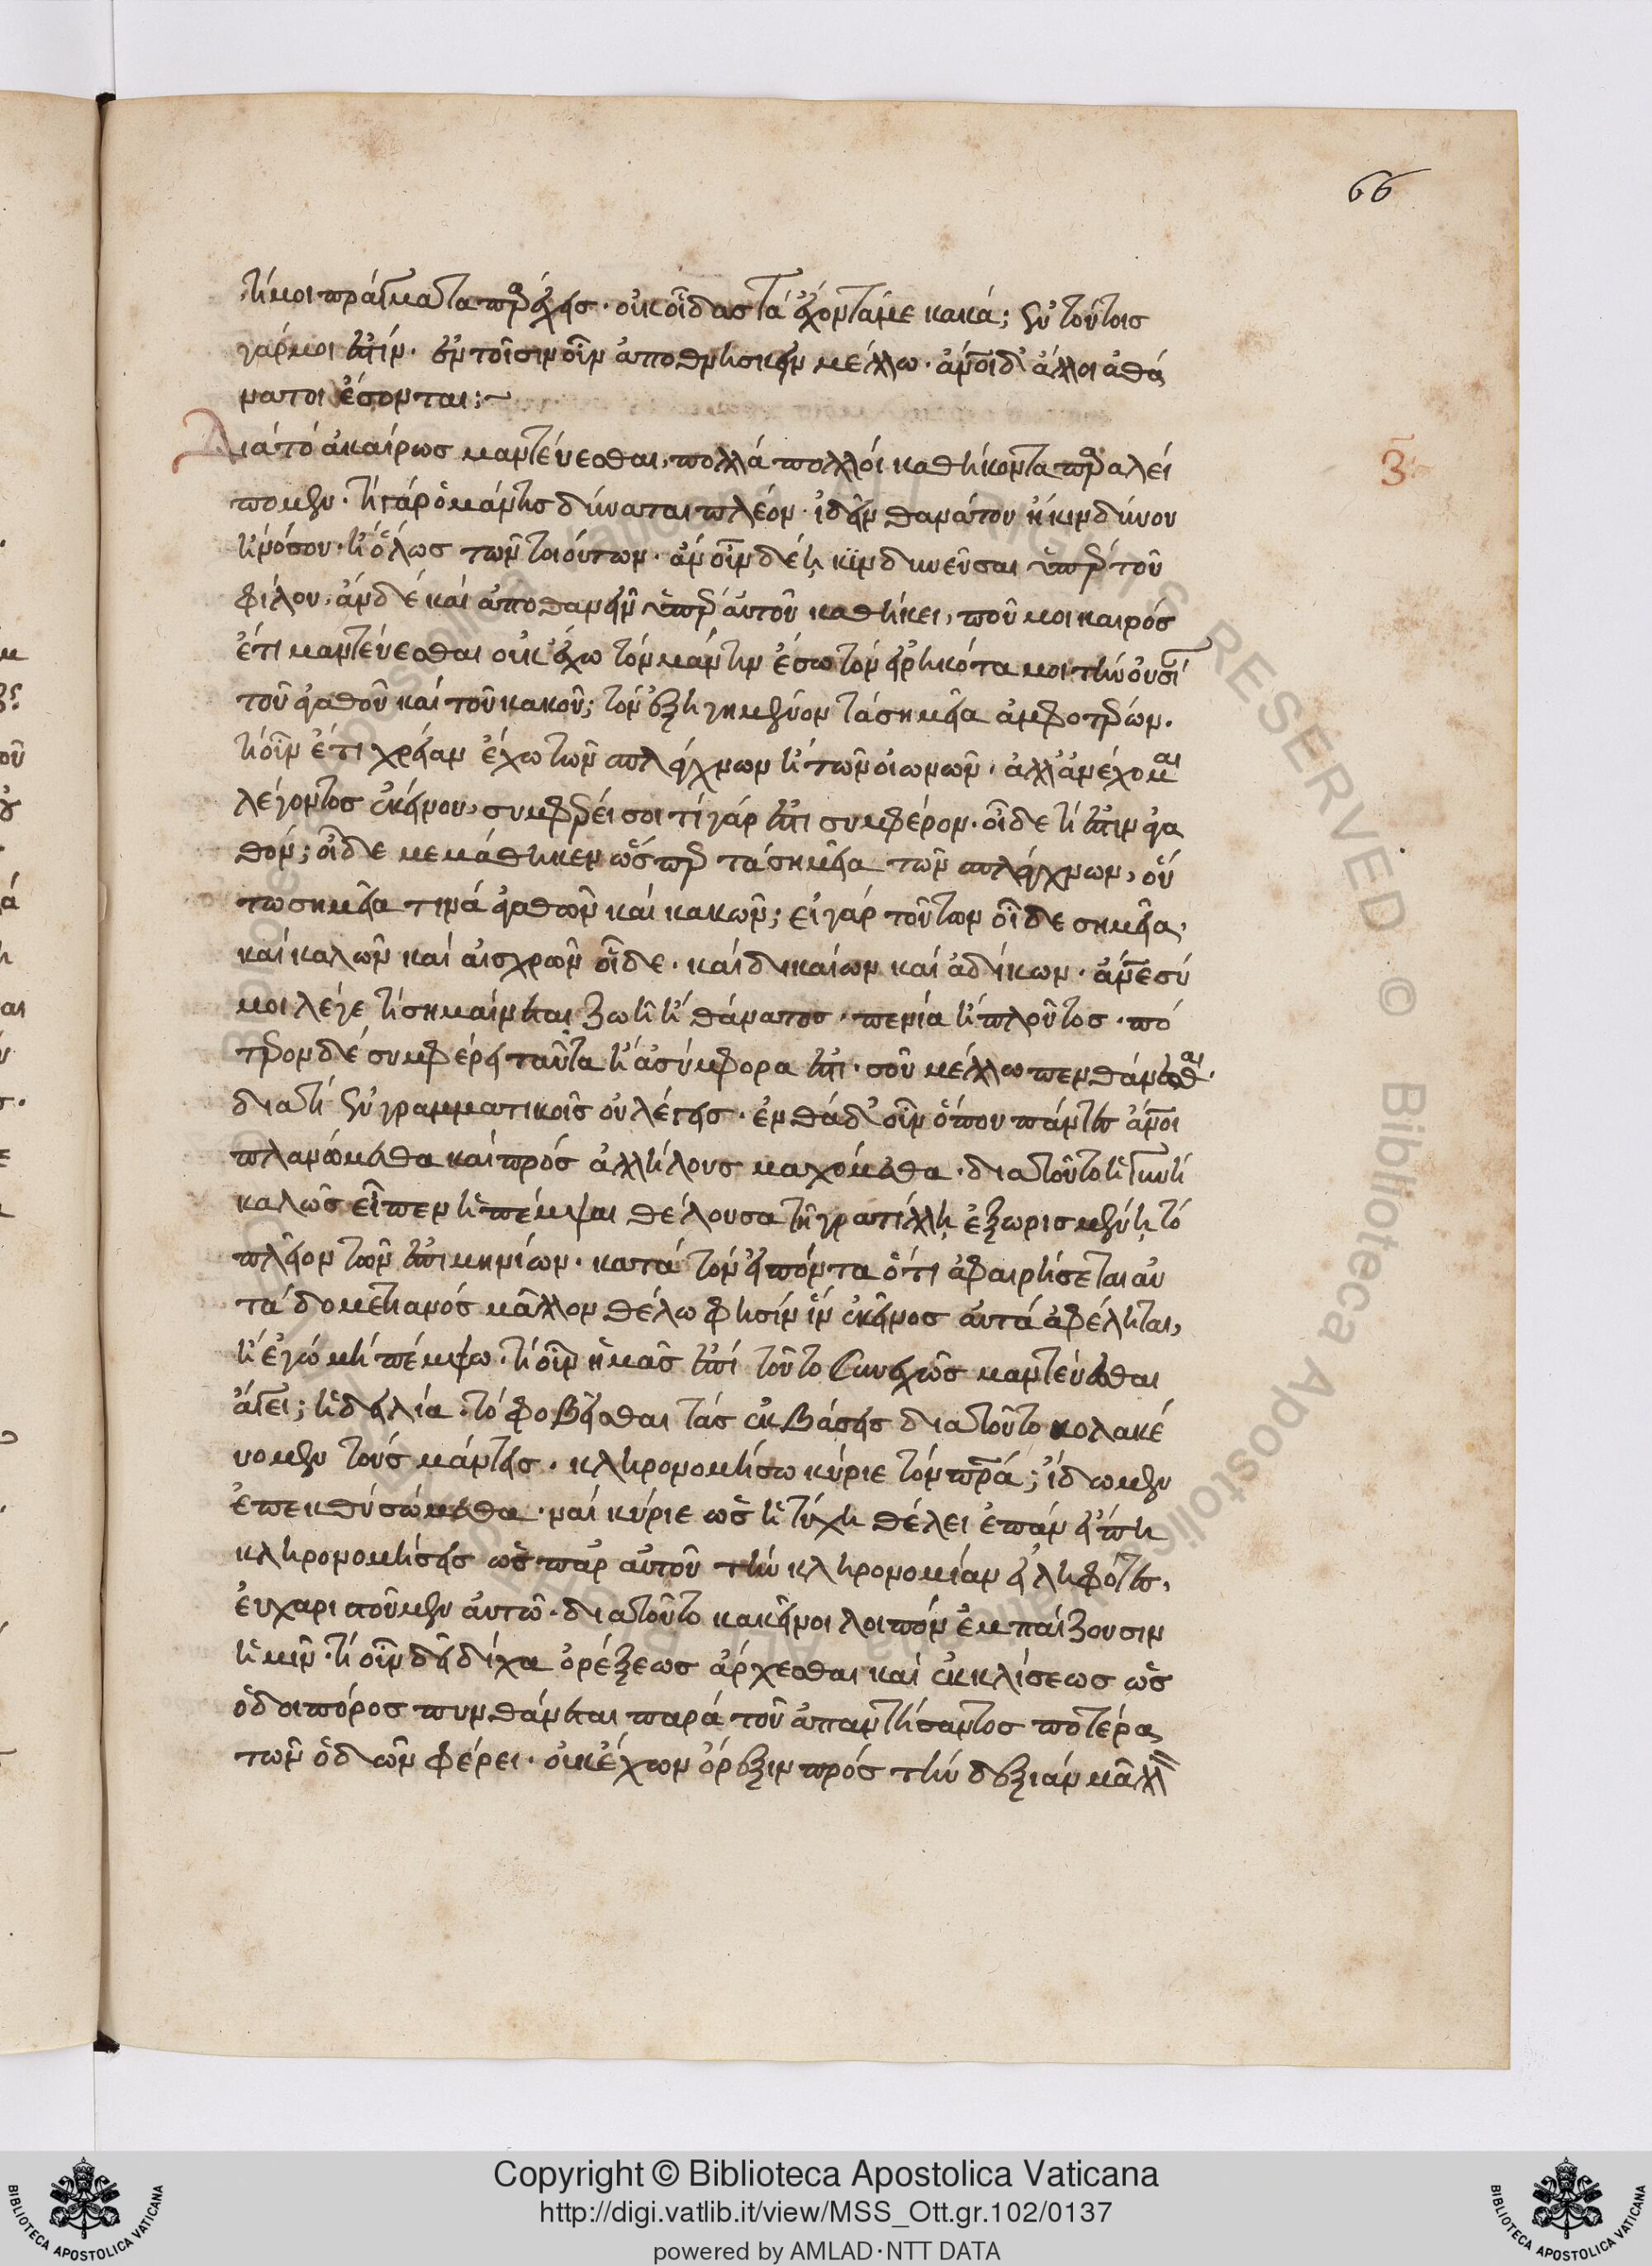 66
τί μοι πράγματα παρέχεις· οὐκ οἶδας τὰ ἔχοντά με κακά; ἐν τούτοις
γάρ μοι ἐστίν· ἐν τοῖσιν οἷν ἀποθνήσκειν μέλλω· ἂν οἱ δ' ἄλλοι ἀθά
νατοι ἔσονται;~
Διὰ τὸ ἀκαίρως μαντεύεσθαι, πολλὰ πολλοὶ καθήκοντα παραλεί
πομεν· τί γὰρ ὁ μάντις δύναται πλέον· ἰδεῖν θανάτου ἢ κινδύνου
ἢ νόσου· ἢ ὅλως τῶν τοιούτων· ἂν οὖν δέῃ κινδυνεῦσαι ὑπὲρ τοῦ
φίλου, ἂν δὲ καὶ ἀποθανεῖν ὑπὲρ αὐτοῦ καθήκει, ποῦ μοι καιρὸς
ἔτι μαντεύεσθαι οὐκ ἔχω τὸν μάντιν ἔσω τὸν εἰρηκότα μοι τὴν οὐσίαν
τοῦ ἀγαθοῦ καὶ τοῦ κακοῦ; τὸν ἐξηγημένον τὰ σημεῖα ἀμφοτέρων.
τί οὖν ἔτι χρείαν ἔχω τῶν σπλάγχνων ἢ τῶν οἰωνῶν· ἀλλ' ἀνέχομαι
λέγοντος ἐκείνου, συμφέρει σοι τί γάρ ἐστι συμφέρον· οἶδε τί ἐστιν ἀγα
θόν; οἶδε μεμάθηκεν ὥσπερ τὰ σημεῖα τῶν σπλάγχνων, οὕ
τω σημεῖα τινὰ ἀγαθῶν καὶ κακῶν; εἰ γὰρ τούτων οἶδε σημεῖα,
καὶ καλῶν καὶ αἰσχρῶν οἶδε· καὶ δικαίων καὶ ἀδίκων· ἄνε σύ
μοι λέγε τί σημαίνεται ζωὴ ἢ θάνατος· πενία ἢ πλοῦτος· πό
τερον δὲ συμφέρει ταῦτα ἢ ἀσύμφορα ἐστι· σοῦ μέλλω πενθάνεσθαι·
διατί ἐν γραμματικοῖς οὐ λέγεις· ἐνθάδ' οὖν ὅπου πάντες ἄνοι
πλανώμεθα καὶ πρὸς ἀλλήλους μαχόμεθα· διατοῦτο ἡ γυνὴ
καλῶς εἶπεν ἡ πέμψαι θέλουσα τῇ γρατίλλῃ ἐξωρισμένῃ τὸ
πλεῖον τῶν ἐπιμηνίων· κατὰ τὸν εἰπόντα ὅτι ἀφαιρήσεται αὐ
τὰ δομετιανὸς μᾶλλον θέλω φησὶν ἵν ἐκεῖνος αὐτὰ ἀφέληται,
ἢ ἐγὼ μὴ πέμψω· τί οὖν ἡμᾶς ἐπὶ τοῦτο συνεχῶς μαντεύεσθαι
ἄγει; ἡ δειλία· τὸ φοβεῖσθαι τὰς ἐκβάσεις διατοῦτο κολακεύ
υομεν τοὺς μάντεις· κληρονομήσω κύριε τὸν πρα; ἴδωμεν
ἐπεκθύσώμεθα· ναὶ κύριε ὡς ἡ τύχη θέλει ἐπὰν εἴπῃ
κληρονομήσεις ὡς παρ αὐτοῦ τὴν κληρονομίαν εἰληφότες,
εὐχαριστοῦμεν αὐτῶ· διατοῦτο κακεῖνοι λοιπὸν ἐμπαίζουσιν
ἡμῖν· τί οὖν δεῖ δίχα ὀρέξεως ἄρχεσθαι καὶ ἐκκλίσεως ὡς
ὁδοιπόρος πυνθάνεται παρὰ τοῦ ἀπαντήσαντος ποτέρα
τῶν ὁδῶν φέρει· οὐκ ἔχων ὄρεξιν πρὸς τὴν δεξιὰν μᾶλλ
ζ
Copyright © Biblioteca Apostolica Vaticana
http://digi.vatlib.it/view/MSS_Ott.gr.102/0137
powered by AMLAD·NTT DATA